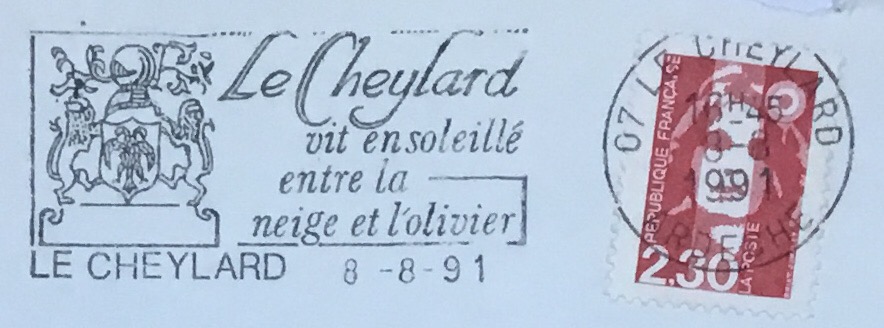 Le Cheylard
vit ensoleillé
entre la
neige et l'olivier
LE CHEYLARD 8-8-91
07 LE CHEYLARD
16H45
8-8
1991
ARDECHE
RÉPUBLIQUE FRANÇAISE
2,30
LA POSTE